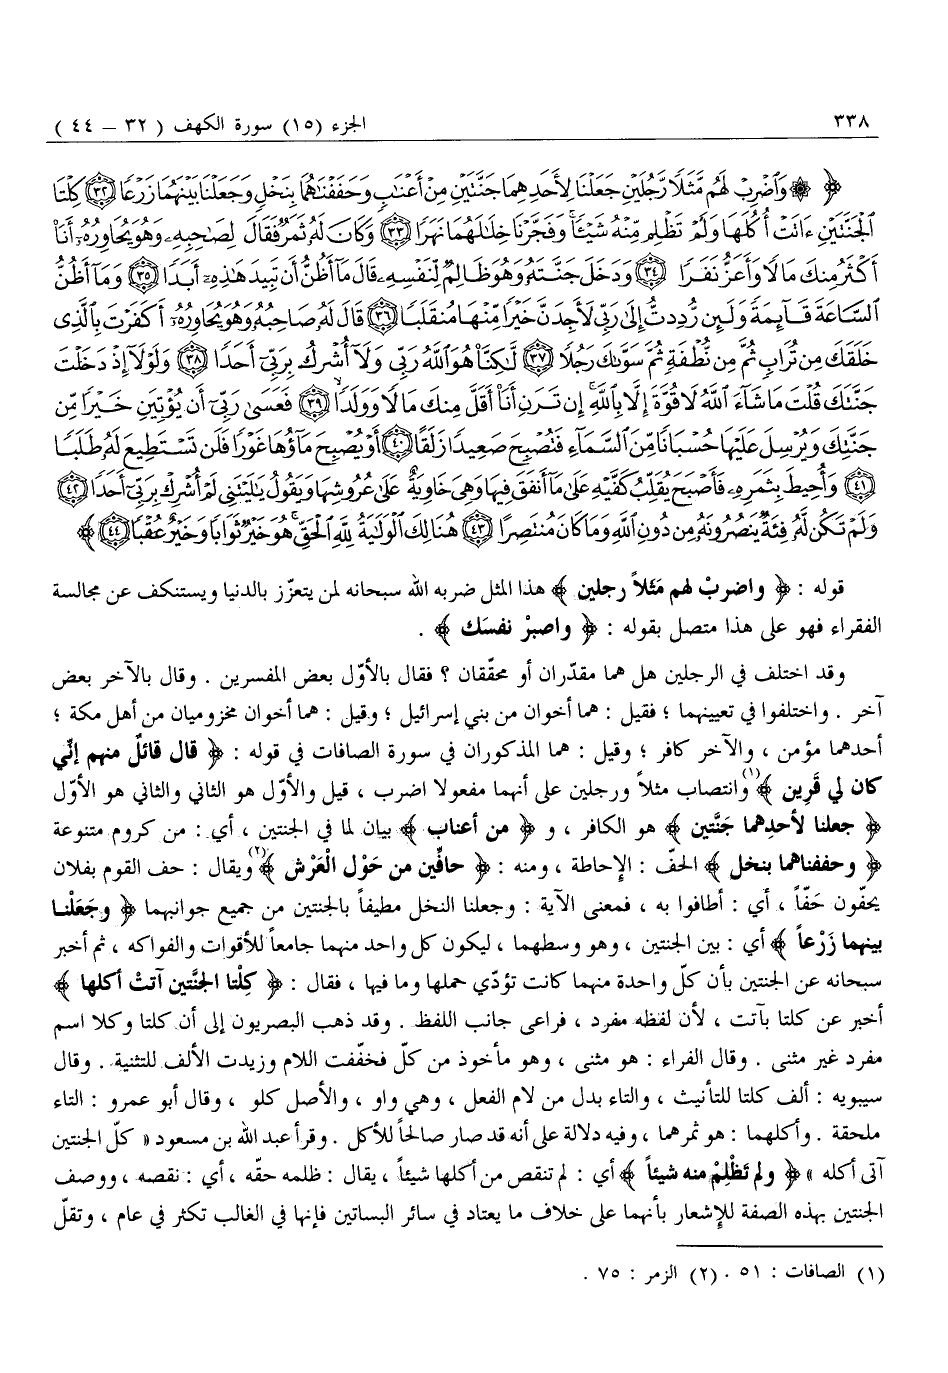 ٣٣٨
الجزء (١٥) سورة الكهف ( ٣٢ – ٤٤ )
﴿ ۞ وَٱضۡرِبۡ لَهُم مَّثَلٗا رَّجُلَيۡنِ جَعَلۡنَا لِأَحَدِهِمَا جَنَّتَيۡنِ مِنۡ أَعۡنَٰبٖ وَحَفَفۡنَٰهُمَا بِنَخۡلٖ وَجَعَلۡنَا بَيۡنَهُمَا زَرۡعٗا ٣٢ كِلۡتَا
ٱلۡجَنَّتَيۡنِ ءَاتَتۡ أُكُلَهَا وَلَمۡ تَظۡلِم مِّنۡهُ شَيۡـٔٗاۚ وَفَجَّرۡنَا خِلَٰلَهُمَا نَهَرٗا ٣٣ وَكَانَ لَهُۥ ثَمَرٞ فَقَالَ لِصَٰحِبِهِۦ وَهُوَ يُحَاوِرُهُۥٓ أَنَا۠
أَكۡثَرُ مِنكَ مَالٗا وَأَعَزُّ نَفَرٗا ٣٤ وَدَخَلَ جَنَّتَهُۥ وَهُوَ ظَالِمٞ لِّنَفۡسِهِۦ قَالَ مَآ أَظُنُّ أَن تَبِيدَ هَٰذِهِۦٓ أَبَدٗا ٣٥ وَمَآ أَظُنُّ
ٱلسَّاعَةَ قَآئِمَةٗ وَلَئِن رُّدِدتُّ إِلَىٰ رَبِّي لَأَجِدَنَّ خَيۡرٗا مِّنۡهَا مُنقَلَبٗا ٣٦ قَالَ لَهُۥ صَاحِبُهُۥ وَهُوَ يُحَاوِرُهُۥٓ أَكَفَرۡتَ بِٱلَّذِي
خَلَقَكَ مِن تُرَابٖ ثُمَّ مِن نُّطۡفَةٖ ثُمَّ سَوَّىٰكَ رَجُلٗا ٣٧ لَّٰكِنَّا۠ هُوَ ٱللَّهُ رَبِّي وَلَآ أُشۡرِكُ بِرَبِّيٓ أَحَدٗا ٣٨ وَلَوۡلَآ إِذۡ دَخَلۡتَ
جَنَّتَكَ قُلۡتَ مَا شَآءَ ٱللَّهُ لَا قُوَّةَ إِلَّا بِٱللَّهِۚ إِن تَرَنِ أَنَا۠ أَقَلَّ مِنكَ مَالٗا وَوَلَدٗا ٣٩ فَعَسَىٰ رَبِّيٓ أَن يُؤۡتِيَنِ خَيۡرٗا مِّن
جَنَّتِكَ وَيُرۡسِلَ عَلَيۡهَا حُسۡبَانٗا مِّنَ ٱلسَّمَآءِ فَتُصۡبِحَ صَعِيدٗا زَلَقًا ٤٠ أَوۡ يُصۡبِحَ مَآؤُهَا غَوۡرٗا فَلَن تَسۡتَطِيعَ لَهُۥ طَلَبٗا
٤١ وَأُحِيطَ بِثَمَرِهِۦ فَأَصۡبَحَ يُقَلِّبُ كَفَّيۡهِ عَلَىٰ مَآ أَنفَقَ فِيهَا وَهِيَ خَاوِيَةٌ عَلَىٰ عُرُوشِهَا وَيَقُولُ يَٰلَيۡتَنِي لَمۡ أُشۡرِكۡ بِرَبِّيٓ أَحَدٗا ٤٢
وَلَمۡ تَكُن لَّهُۥ فِئَةٞ يَنصُرُونَهُۥ مِن دُونِ ٱللَّهِ وَمَا كَانَ مُنتَصِرًا ٤٣ هُنَالِكَ ٱلۡوَلَٰيَةُ لِلَّهِ ٱلۡحَقِّۚ هُوَ خَيۡرٞ ثَوَابٗا وَخَيۡرٌ عُقۡبٗا ٤٤ ﴾
قوله : ﴿ واضربْ لهم مَثَلاً رجلين ﴾ هذا المثل ضربه الله سبحانه لمن يتعزّز بالدنيا ويستنكف عن مجالسة
الفقراء فهو على هذا متصل بقوله : ﴿ واصبرْ نفسَك ﴾ .
وقد اختلف في الرجلين هل هما مقدّران أو محقّقان ؟ فقال بالأوّل بعض المفسرين . وقال بالآخر بعض
آخر . واختلفوا في تعيينهما ؛ فقيل : هما أخوان من بني إسرائيل ؛ وقيل : هما أخوان مخزوميان من أهل مكة ؛
أحدهما مؤمن ، والآخر كافر ؛ وقيل : هما المذكوران في سورة الصافات في قوله : ﴿ قال قائلٌ منهم إنّي
كان لي قَرِين ﴾(١) وانتصاب مثلاً ورجلين على أنهما مفعولا اضرب ، قيل والأوّل هو الثاني والثاني هو الأوّل
﴿ جعلنا لأحدِهما جَنَّتين ﴾ هو الكافر ، و ﴿ من أعناب ﴾ بيان لما في الجنتين ، أي : من كروم متنوعة
﴿ وحففناهما بنخل ﴾ الحفّ : الإحاطة ، ومنه : ﴿ حافِّين من حَوْل العَرْش ﴾(٢) ويقال : حف القوم بفلان
يحفّون حَفّاً ، أي : أطافوا به ، فمعنى الآية : وجعلنا النخل مطيفاً بالجنتين من جميع جوانبهما ﴿ وجَعَلْنا
بينهما زَرْعاً ﴾ أي : بين الجنتين ، وهو وسطهما ، ليكون كل واحد منهما جامعاً للأقوات والفواكه ، ثم أخبر
سبحانه عن الجنتين بأن كلّ واحدة منهما كانت تؤدّي حملها وما فيها ، فقال : ﴿ كِلْتا الجنَّتين آتتْ أكلها ﴾
أخبر عن كلتا بآتت ، لأن لفظه مفرد ، فراعى جانب اللفظ . وقد ذهب البصريون إلى أن كلتا وكلا اسم
مفرد غير مثنى . وقال الفراء : هو مثنى ، وهو مأخوذ من كلّ فخفّفت اللام وزيدت الألف للتثنية . وقال
سيبويه : ألف كلتا للتأنيث ، والتاء بدل من لام الفعل ، وهي واو ، والأصل كلو ، وقال أبو عمرو : التاء
ملحقة . وأكلهما : هو ثمرهما ، وفيه دلالة على أنه قد صار صالحاً للأكل . وقرأ عبد الله بن مسعود « كلّ الجنتين
آتى أكله » ﴿ ولم تَظْلِمْ منه شيئاً ﴾ أي : لم تنقص من أكلها شيئاً ، يقال : ظلمه حقّه ، أي : نقصه ، ووصف
الجنتين بهذه الصفة للإشعار بأنهما على خلاف ما يعتاد في سائر البساتين فإنها في الغالب تكثر في عام ، وتقلّ
(١) الصافات : ٥١ . (٢) الزمر : ٧٥ .